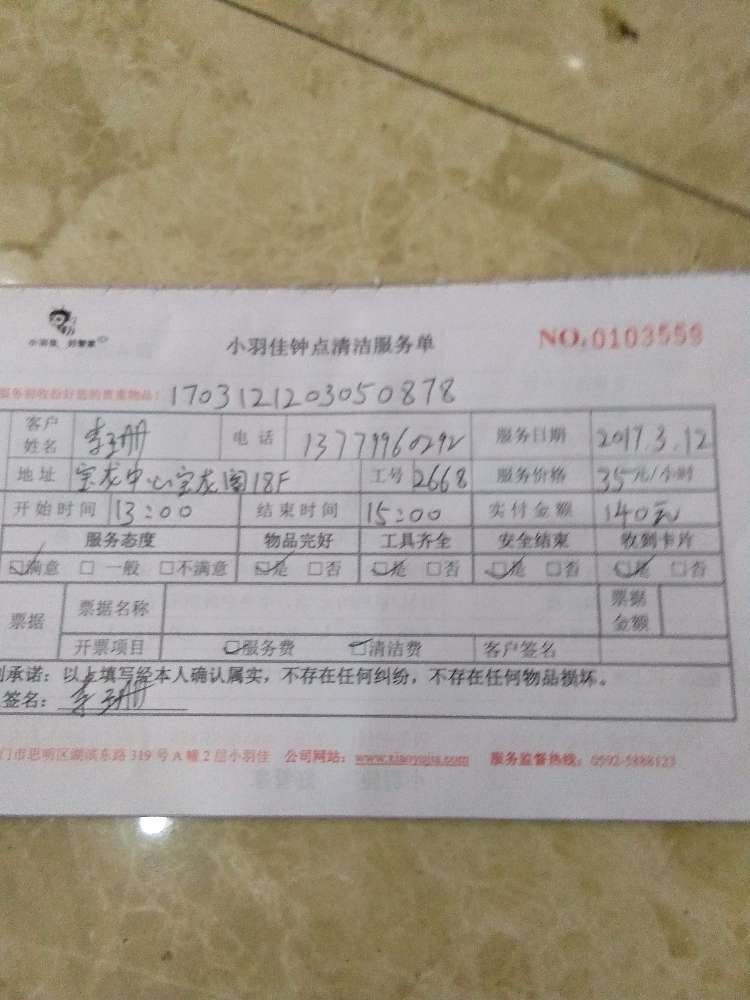 小羽佳 好管家
小羽佳钟点清洁服务单
NO.0103559
服务前收拾好您的贵重物品: 1703121203050878
客户姓名 电话 13779960292 服务日期 2017.3.12
地址 宝龙中心宝龙阁18F 工号 2668 服务价格 35元/小时
开始时间 13:00 结束时间 15:00 实付金额 140元
服务态度 物品完好 工具齐全 安全结束 收到卡片
满意 一般 不满意 是 否 是 否 是 否 是 否
票据 票据名称 票据金额
开票项目 服务费 清洁费 客户签名
承诺:以上填写经本人确认属实,不存在任何纠纷,不存在任何物品损坏。
签名:
门市思明区湖滨东路319号A幢2层小羽佳 公司网站:www.xiaoyujia.com 服务监督热线:0592-5888123